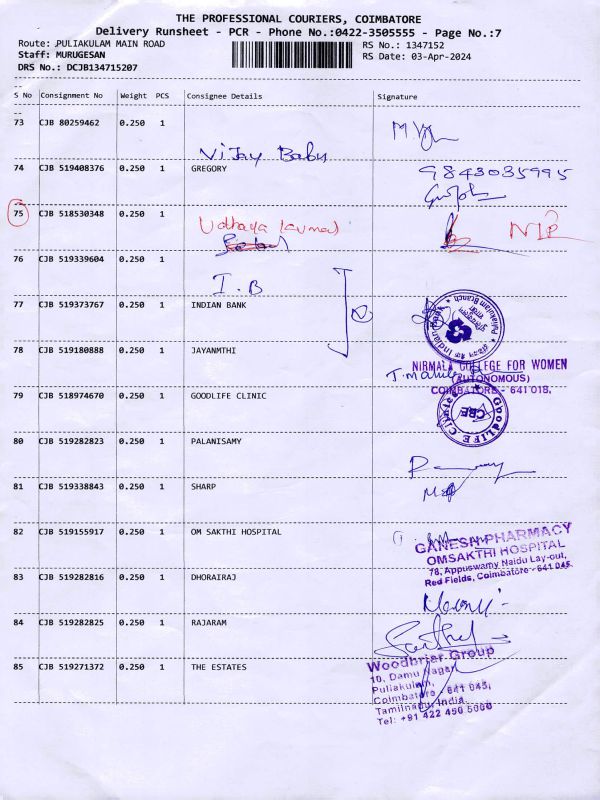 THE PROFESSIONAL COURIERS, COIMBATORE
Delivery Runsheet - PCR - Phone No.:0422-3505555 - Page No.:7
Route: PULIAKULAM MAIN ROAD
RS No.: 1347152
Staff: MURUGESAN
RS Date: 03-Apr-2024
DRS No.: DCJB134715207
S No Consignment No Weight PCS Consignee Details Signature
73 CJB 80259462 0.250 1
Vijay Babu
74 CJB 519408376 0.250 1 GREGORY 9843035995
75 CJB 518530348 0.250 1 Udhaya Kumar
76 CJB 519339604 0.250 1
I.B
77 CJB 519373767 0.250 1 INDIAN BANK
Puliakulam Branch
78 CJB 519180888 0.250 1 JAYANMTHI
NIRMALA COLLEGE FOR WOMEN
(AUTONOMOUS)
COIMBATORE - 641 018.
79 CJB 518974670 0.250 1 GOODLIFE CLINIC
GoodLIFE Clinic
CBE
80 CJB 519282823 0.250 1 PALANISAMY
81 CJB 519338843 0.250 1 SHARP
82 CJB 519155917 0.250 1 OM SAKTHI HOSPITAL
GANESH PHARMACY
OMSAKTHI HOSPITAL
78, Appuswamy Naidu Lay-out,
Red Fields, Coimbatore - 641 045.
83 CJB 519282816 0.250 1 DHORAIRAJ
84 CJB 519282825 0.250 1 RAJARAM
85 CJB 519271372 0.250 1 THE ESTATES
Woodbriar Group
10, Damu Nagar,
Puliakulam,
Coimbatore - 641 045,
Tamilnadu, India.
Tel: +91 422 450 5000